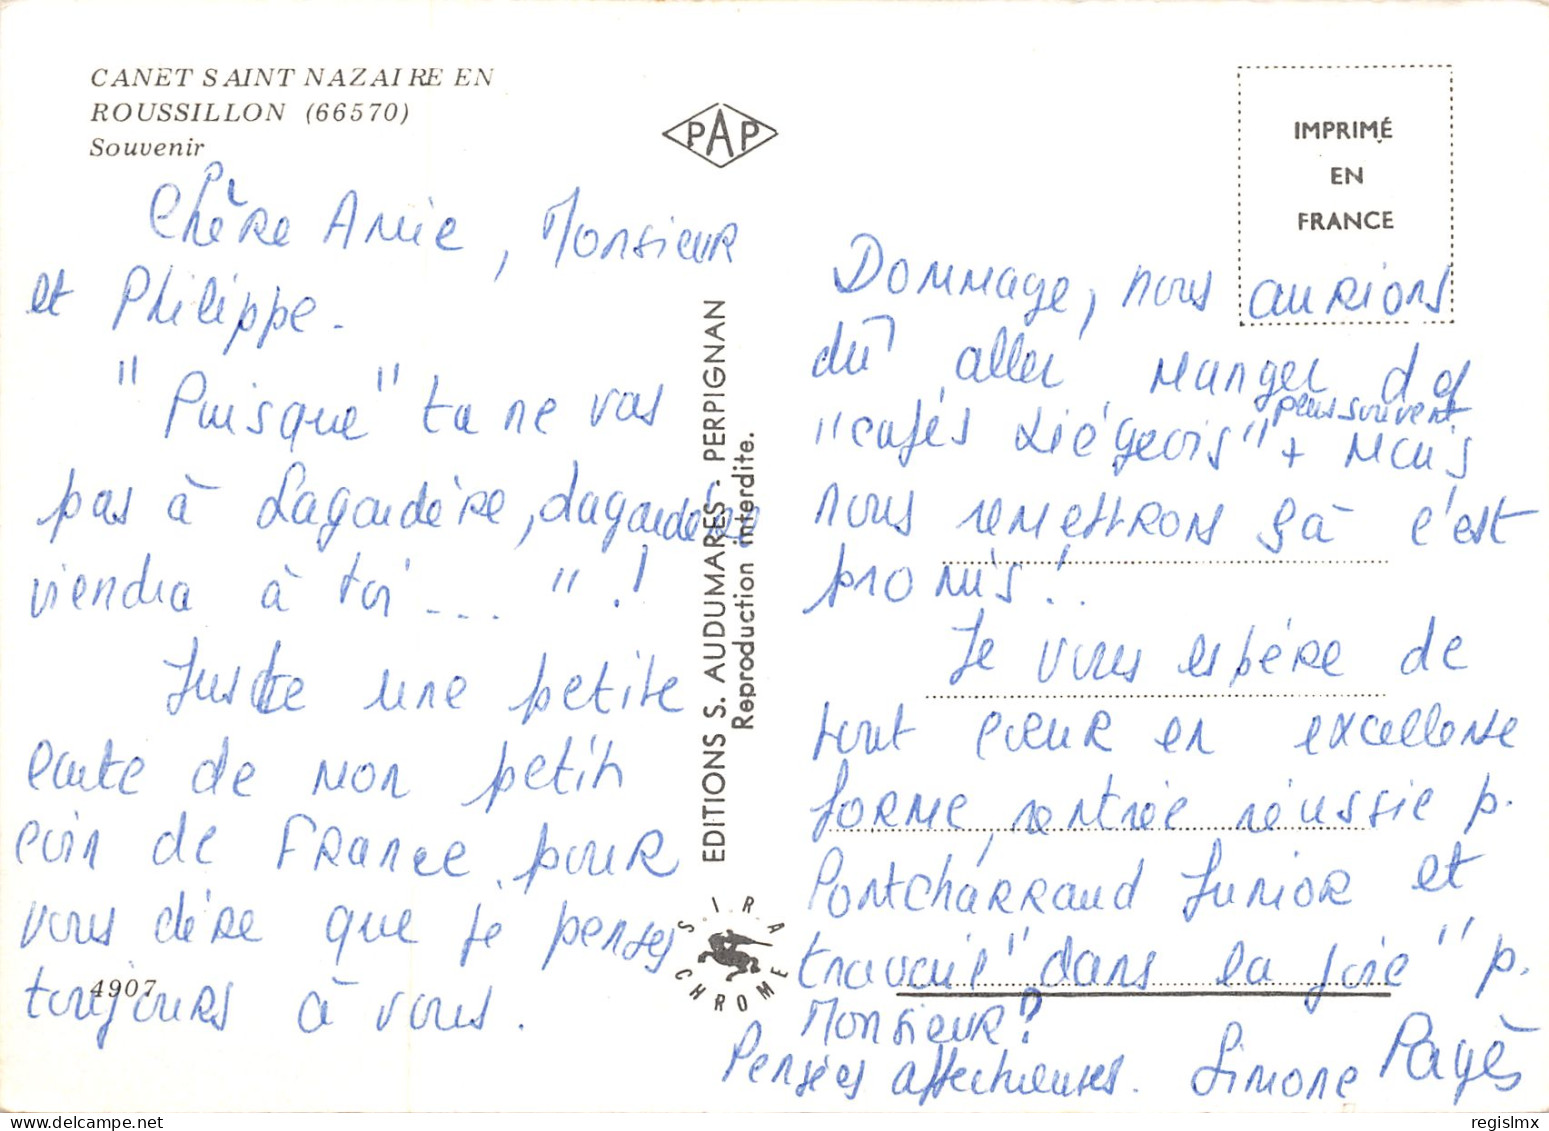 CANET SAINT NAZAIRE EN
ROUSSILLON (66570)
Souvenir
PAP
IMPRIMÉ
EN
FRANCE
Chère Amie, Monsieur
et Philippe.
"Puisque" tu ne vas
pas à Lagardère, Lagardère
viendra à toi ---- "!
Juste une petite
carte de mon petit
coin de France pour
vous dire que je penses
toujours à vous.
4907
EDITIONS S. AUDUMARES - PERPIGNAN
Reproduction interdite.
SIRA
CHROME
Dommage, nous aurions
dû aller manger d
plus souvent
"cafés Liégeois" + Mais
nous remettrons ça c'est
promis!..
Je vous espère de
tout coeur en excellente
forme, rentrée réussie p.
Pontcharraud Junior et
travail "dans la joie" p.
Monsieur?
Pensées affectueuses. Simone Pagès
regislmx